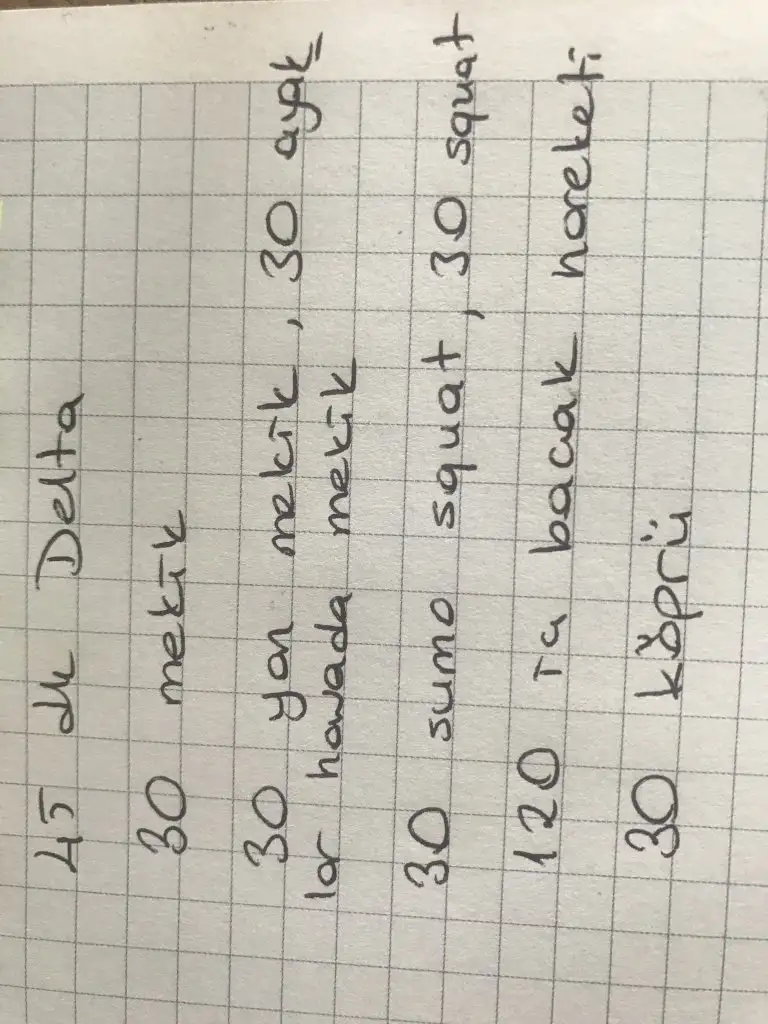 45 dk Delta
30 mekik
30 yan mekik, 30 ayak
lar havada mekik
30 sumo squat, 30 squat
120 ta bacak hareketi
30 köprü